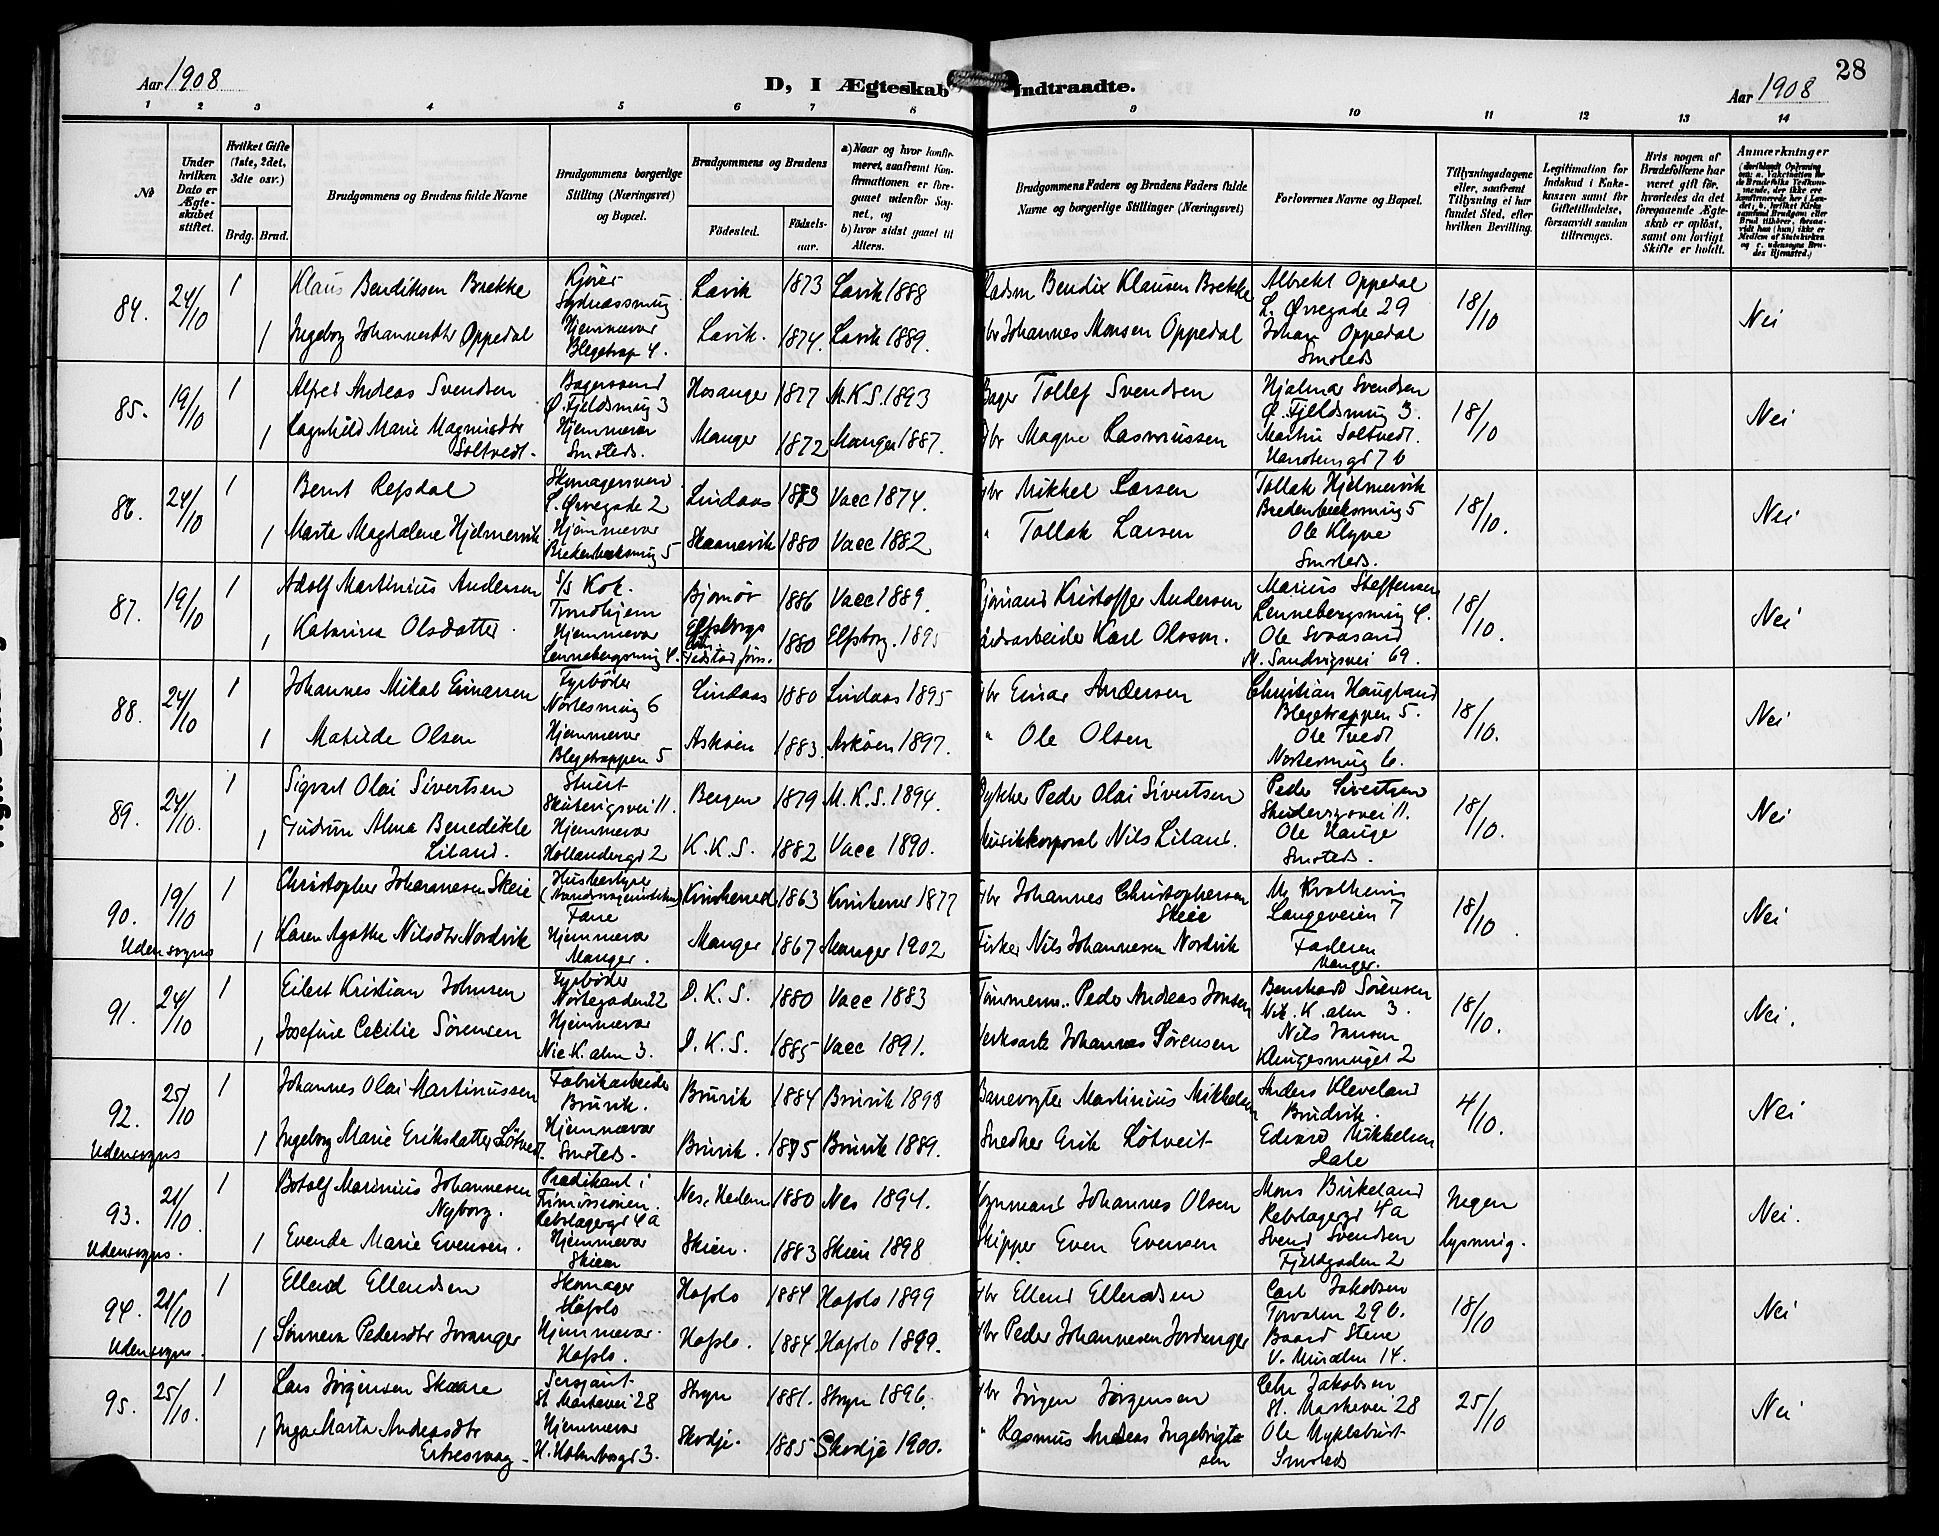 28
Aar 1908
D, I Ægteskab Indtraadte.
Aar 1908
1 2 3 4 5 6 7 8 9 10 11 12 13 14
No
Under hvilken Dato er Ægteskabet stiftet.
Hvilket Gifte (1ste, 2det, 3die osv.)
Brdg. Brud.
Brudgommens og Brudens fulde Navne
Brudgommens borgerlige Stilling (Næringsvei) og Bopæl.
Brudgommens og Brudens
Fødested.
Fødselsaar.
a) Naar og hvor konfirmeret, saafremt Konfirmationen er foregaaet udenfor Sognet, og
b) hvor sidst gaaet til Alters.
Brudgommens Faders og Brudens Faders fulde Navne og borgerlige Stillinger (Næringsvei)
Forlovernes Navne og Bopæl.
Tillysningsdagene eller, saafremt Tillysning ei har fundet Sted, efter hvilken Bevilling.
Legitimation for Indskud i Enkekassen samt for Giftetilladelse, forsaavidt saadan tiltrænges.
Hvis nogen af Brudefolkene har været gift før, hvorledes da det foregaaende Ægteskab er opløst, samt om lovligt Skifte er holdt.
Anmærkninger
84. 24/10 1 Klaus Bendiksen Brekke Kjører Lavik 1873 Lavik 1888 Bendix Klausen Brekke Albrekt Oppedal 18/10 Nei
L. Øvregade 29
1 Ingeborg Johannesdtr Oppedal Hjemmevær Blegetrap 4. Lavik. 1874. Lavik 1889. Johannes Monsen Oppedal Johan Oppedal
Smsteds
85. 19/10 1 Alfred Andreas Svendsen Bagersvend Hosanger 1877 M.K.S. 1893 Bager Tollef Svendsen Hjalmar Svendsen 18/10 Nei
Ø. Fjeldsmug 3 Ø. Fjeldsmug 3.
1 Ragnhild Marie Magnusdtr Soltvedt. Hjemmevær Smsteds. Manger 1872 Manger 1887. Magne Rasmussen Martin Soltvedt.
86. 24/10 1 Bernt Refsdal Skomagersvend Lindaas 1873 Vacc 1874. Mikkel Larsen Tollak Hjelmervik 18/10. Nei
L. Øvregade 2 Bredenbecksmug 5
1 Marta Magdalene Hjelmervik Hjemmevær Bredenbecksmug 5 Skaanevik 1880 Vacc 1882 " Tollak Larsen Ole Klyve
Smsteds.
87. 19/10 1 Adolf Martinius Andersen S/S Kok. Trondhjem Bjørnør 1886 Vacc 1889. Kristoffer Andersen Marius Steffensen 18/10. Nei
Lennebergsmug 4.
1 Katarina Olsdatter. Hjemmevær Lennebergsmug 4. Elfsborgs län 1880 Elfsborg. 1895 Karl Olsson. Ole Svaasand
N. Sandvigsvei 69.
88. 24/10 1 Johannes Mikal Einarsen Fyrbøder Lindaas 1880 Lindaas 1895 Einar Andersen Christian Haugland 18/10. Nei
Nortesmug 6 Blegetrappen 5.
1 Matilde Olsen Hjemmevær Blegetrappen 5 Askøen 1883. Askøen 1897. " Ole Olsen Ole Tvedt
Nortesmug 6.
89. 24/10. 1 Sigvart Olai Sivertsen Stuert Bergen 1879 M.K.S. 1894. Dykker Peder Olai Sivertsen Peder Sivertsen 18/10. Nei
Skutevigsvei 11. Skutevigsvei 11.
1 Gudrun Alma Benedikte Liland. Hjemmevær Hollendergd 2 K.K.S. 1882 Vacc 1890. Musikkorporal Nils Liland. Ole Hauge
Smsteds.
90. 19/10 1 Christopher Johannesen Skeie Husbestyrer Fane Kvinherred 1863 Kvinherred 1877 Johannes Christophersen Skeie M. Kvalheim 18/10. Nei
Langeveien 7
Udensogns 1 Karen Agathe Nilsdtr Nordvik Hjemmevær Manger. Manger 1867 Manger 1902 Fisker Nils Johannesen Nordvik Faderen
Manger.
91. 24/10 1 Eilert Kristian Johnsen Fyrbøder D.K.S. 1880 Vacc 1883 Tømmerm. Peder Andreas Jonsen Bernhard Sørensen 18/10. Nei.
Nørtegaden 22 Nic. K. alm 3.
1 Josefine Cecilie Sørensen Hjemmevær Nic K. alm 3. D.K.S. 1885 Vacc 1891. Johannes Sørensen Nils Jansen
Klingesmuget 2
92. 25/10 1 Johannes Olai Martinussen Fabrikarbeider Bruvik. Bruvik 1884 Bruvik 1898 Banevogter Martinius Mikkelsen Anders Kleveland 4/10. Nei
Brudvik.
Udensogns 1 Ingeborg Marie Eriksdatter Løtveit. Hjemmevær Smsteds. Bruvik. 1875 Bruvik 1889. Snedker Erik Løtveit Edvard Mikkelsen
Dale
93. 21/10. 1 Botolf Marinius Johannesen Nyborg. Prædikant i Nes, Hedem 1880 Nes 1894. Johannes Olsen Mons Birkeland Ingen lysning. Nei.
Rebslagergd 4a Rebslagergd 4a
Udensogns. 1 Evenda Marie Evensen. Hjemmevær Skien Skien. 1883 Skien 1898 Skipper Even Evensen Svend Svendsen
Fjeldgaden 2
94. 21/10 1 Ellend Ellendsen Skomager Hafslo Hafslo 1884 Hafslo 1899 Ellend Ellendsen Carl Jakobsen 18/10 Nei
Torvalm 29 b.
Udensogns. 1 Sønneva Pedersdtr Joranger Hjemmevær. Hafslo. Hafslo. 1884. Hafslo 1899. Peder Johannesen Joranger Baard Stene
V. Muralm 14.
95. 25/10. 1 Lars Jørgensen Skaare Sersjant Stryn 1881. Stryn 1896. Jørgen Jørgensen Chr Jakobsen 25/10 Nei
St. Markevei 28 St. Markevei 28
1 Inga Marta Andreasdtr Hjemmevær H. Holmbogd 3. Skodje. 1885 Skodje 1900. " Rasmus Andreas Ingebrigtsen Ole Myklebust
Smsteds